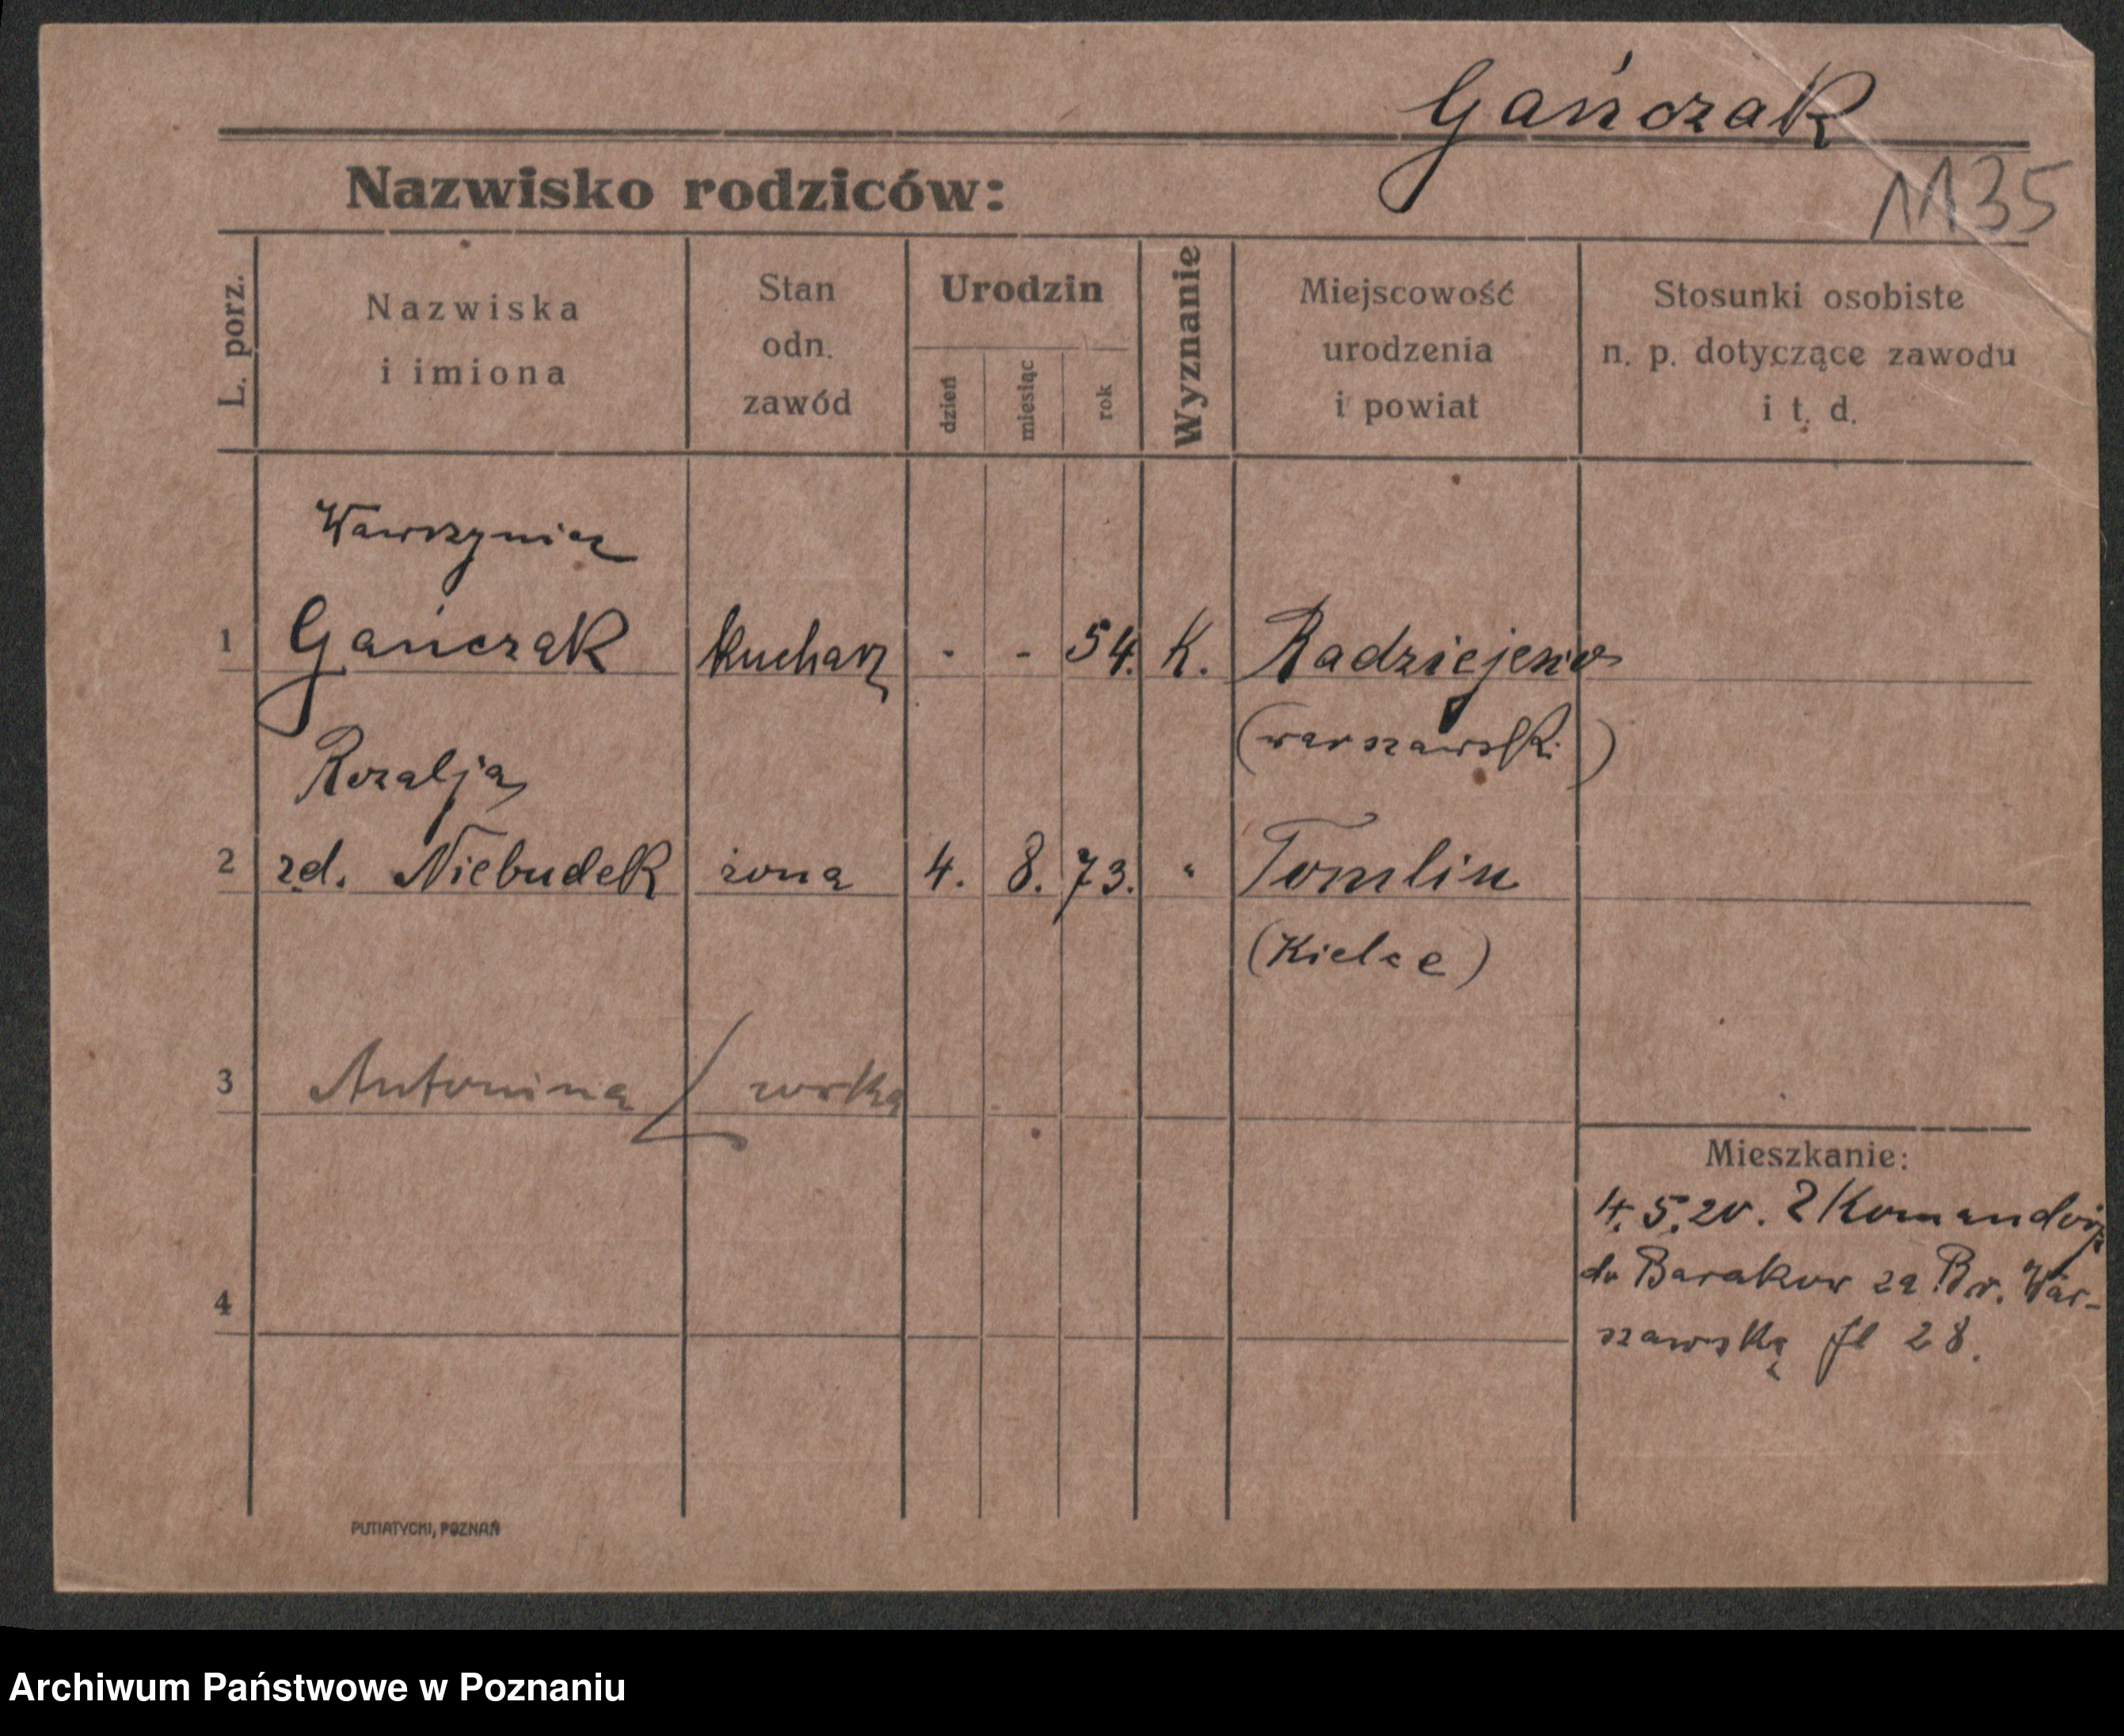 Gańczak
Nazwisko rodziców:
1135
L. porz.
Nazwiska
i imiona
Stan
odn.
zawód
Urodzin
dzień
miesiąc
rok
Wyznanie
Miejscowość
urodzenia
i powiat
Stosunki osobiste
n. p. dotyczące zawodu
i t. d.
Wawrzyniec
1 Gańczak kucharz - - 54. K. Radziejewo
(warszawski)
Rozalja
2 zd. Niebudek żona 4. 8. 73. " Tomlin
(Kielce)
3 Antonina córka
Mieszkanie:
4. 5. 20. Z Komandorji
do Barakow za Br. War-
szawską 28.
4
PUTIATYCKI, POZNAŃ
Archiwum Państwowe w Poznaniu